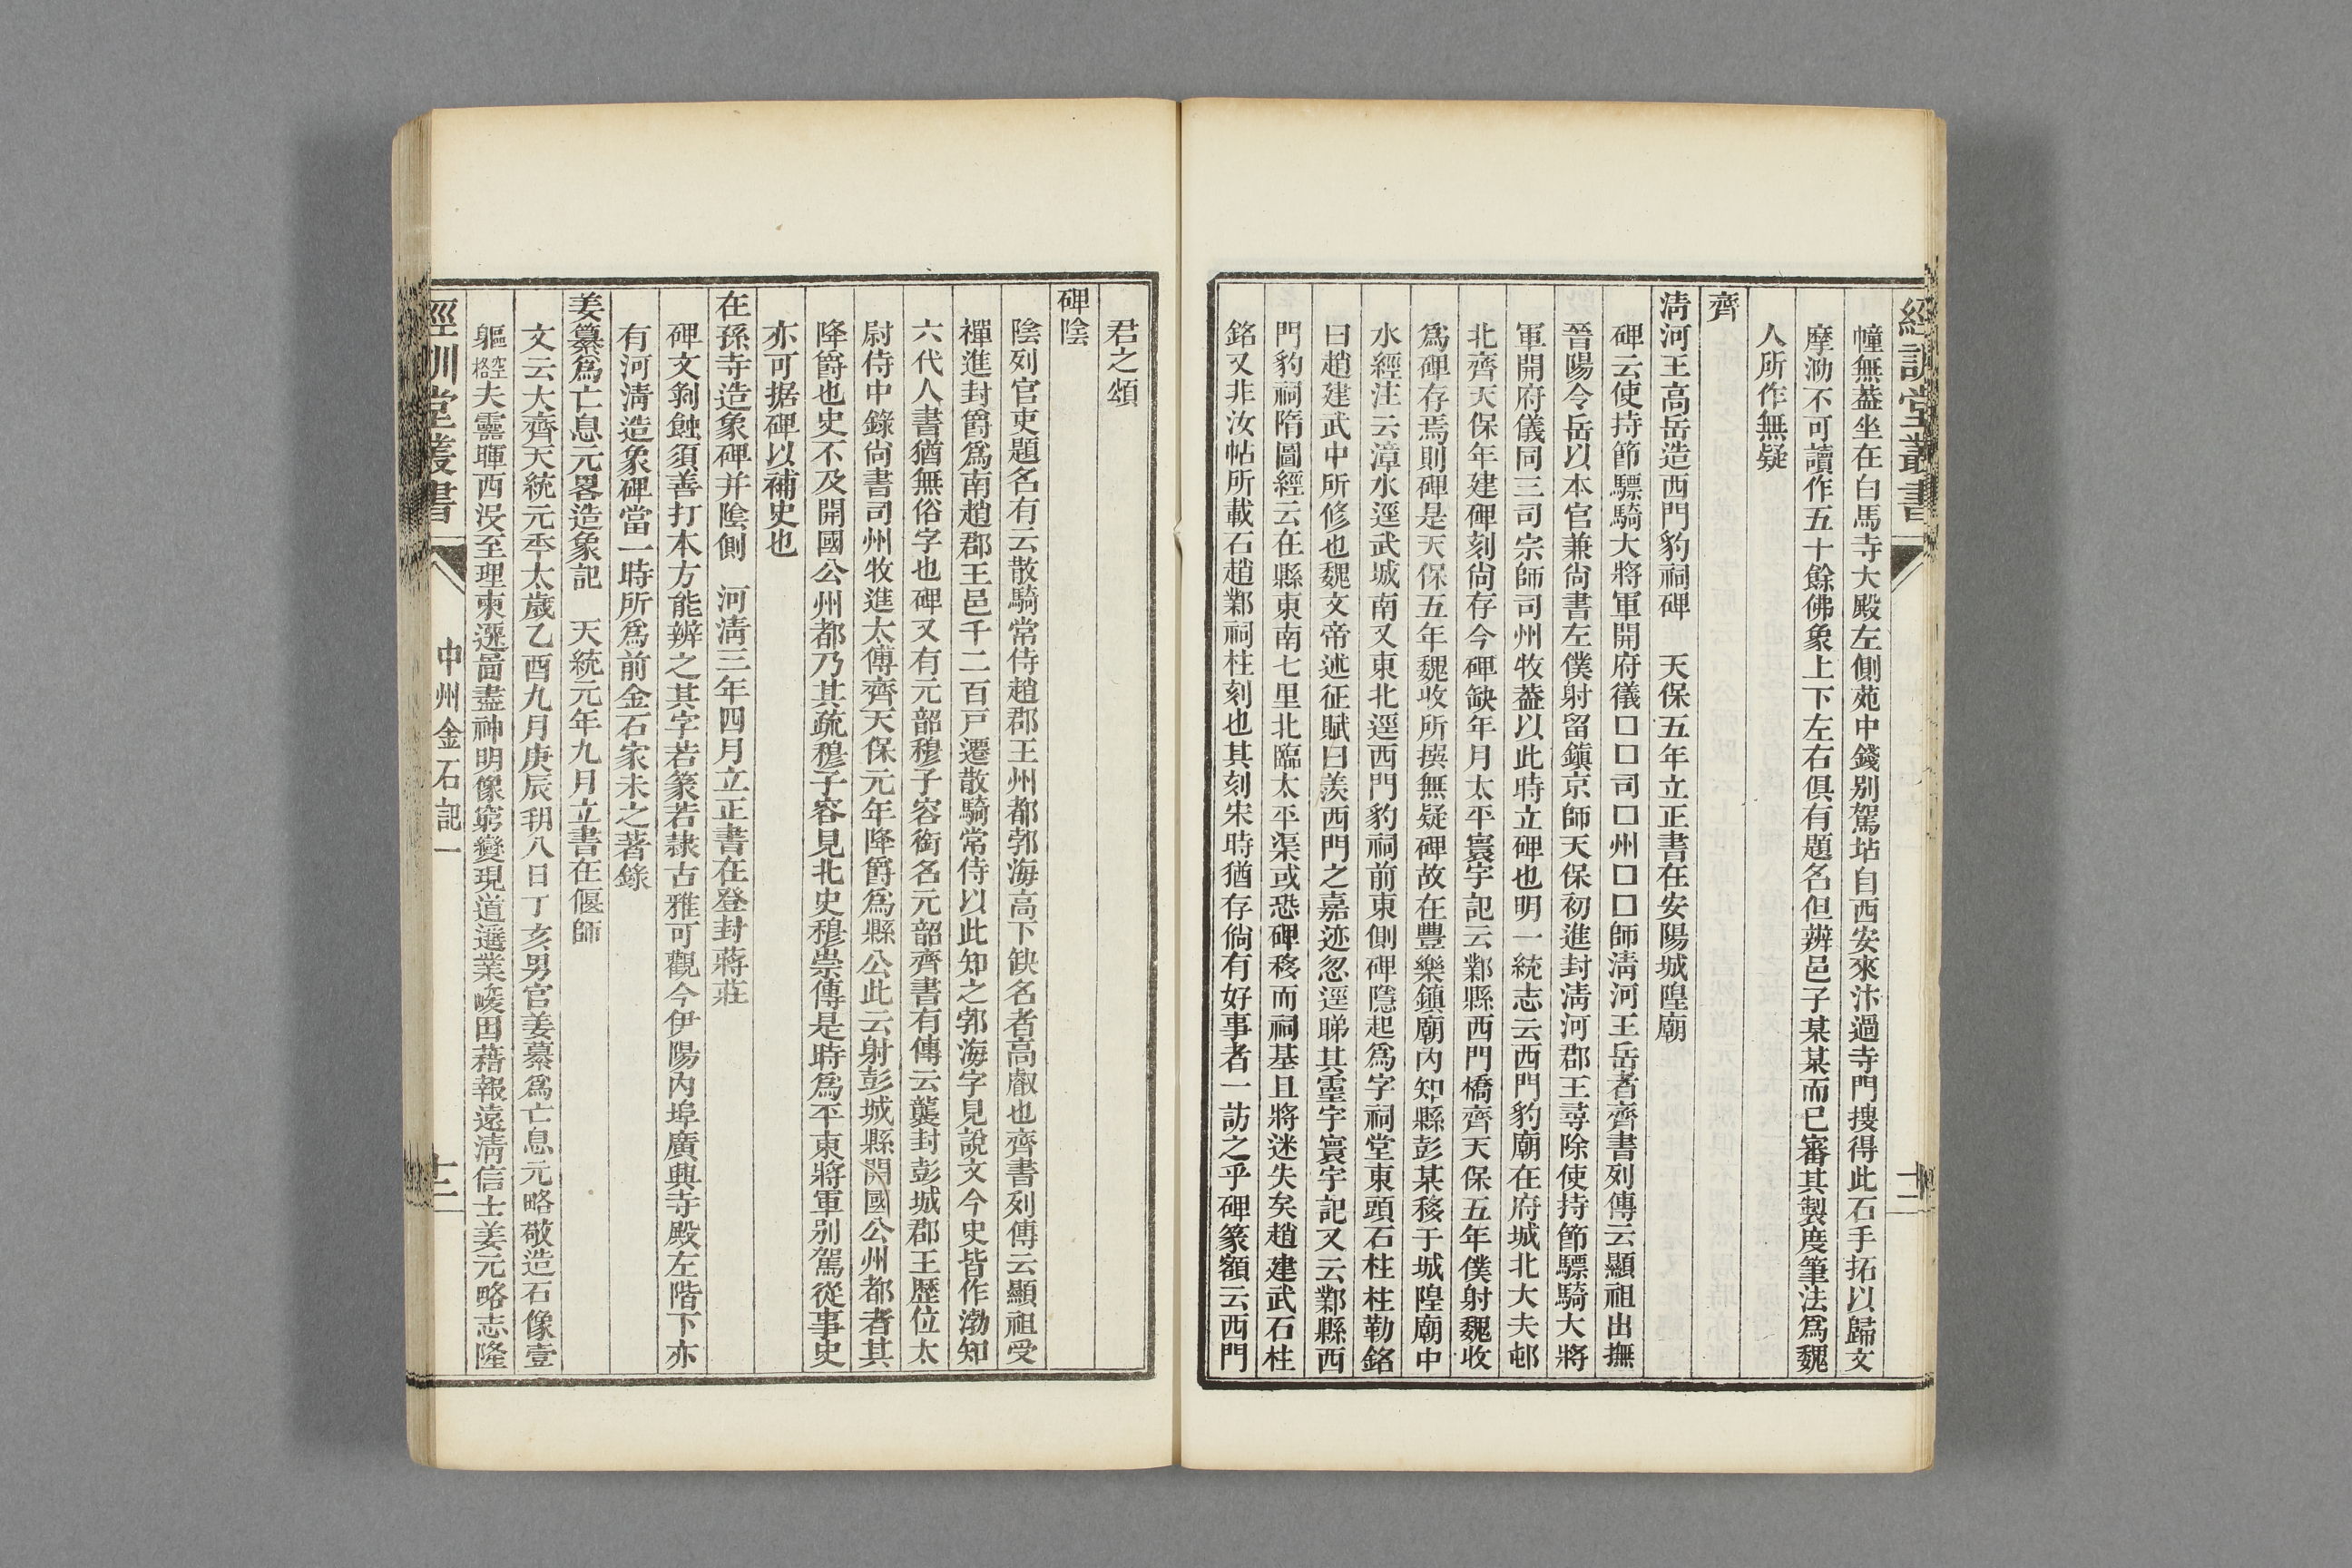 經訓堂叢書
十二
幢無葢坐在白馬寺大殿左側苑中錢别駕坫自西安來汴過寺門搜得此石手拓以歸文
摩泐不可讀作五十餘佛象上下左右俱有題名但辨邑子某某而已審其製度筆法爲魏
人所作無疑
齊
淸河王高岳造西門豹祠碑　天保五年立正書在安陽城隍廟
碑云使持節驃騎大將軍開府儀口口司口州口口師淸河王岳者齊書列傳云顯祖出撫
晉陽令岳以本官兼尙書左僕射留鎭京師天保初進封淸河郡王尋除使持節驃騎大將
軍開府儀同三司宗師司州牧葢以此時立碑也明一統志云西門豹廟在府城北大夫邨
北齊天保年建碑刻尙存今碑缺年月太平寰宇記云鄴縣西門橋齊天保五年僕射魏收
爲碑存焉則碑是天保五年魏收所撰無疑碑故在豐樂鎮廟內知縣彭某移于城隍廟中
水經注云漳水逕武城南又東北逕西門豹祠前東側碑隱起爲字祠堂東頭石柱柱勒銘
曰趙建武中所修也魏文帝述征賦曰羨西門之嘉迹忽逕睇其靈宇寰宇記又云鄴縣西
門豹祠隋圖經云在縣東南七里北臨太平渠或恐碑移而祠基且將迷失矣趙建武石柱
銘又非汝帖所載石趙鄴祠柱刻也其刻宋時猶存倘有好事者一訪之乎碑篆額云西門
君之頌
碑陰
陰列官吏題名有云散騎常侍趙郡王州都郭海高下缺名者高叡也齊書列傳云顯祖受
禪進封爵爲南趙郡王邑千二百戸遷散騎常侍以此知之郭海字見說文今史皆作渤知
六代人書猶無俗字也碑又有元韶穆子容銜名元韶齊書有傳云襲封彭城郡王歴位太
尉侍中錄尙書司州牧進太傅齊天保元年降爵爲縣公此云射彭城縣開國公州都者其
降爵也史不及開國公州都乃其疏穆子容見北史穆崇傳是時爲平東將軍别駕從事史
亦可据碑以補史也
在孫寺造象碑并陰側　河淸三年四月立正書在登封蔣莊
碑文剝蝕須善打本方能辨之其字若篆若隷古雅可觀今伊陽內埠廣興寺殿左階下亦
有河淸造象碑當一時所爲前金石家未之著錄
姜纂爲亡息元畧造象記　天統元年九月立書在偃師
文云大齊天統元秊太歲乙酉九月庚辰朔八日丁亥男官姜纂爲亡息元略敬造石像壹
軀空格夫靈暉西没至理東遷啚盡神明像窮變現道邁業峻田藉報遠淸信士姜元略志隆
經訓堂叢書
中州金石記一
十二